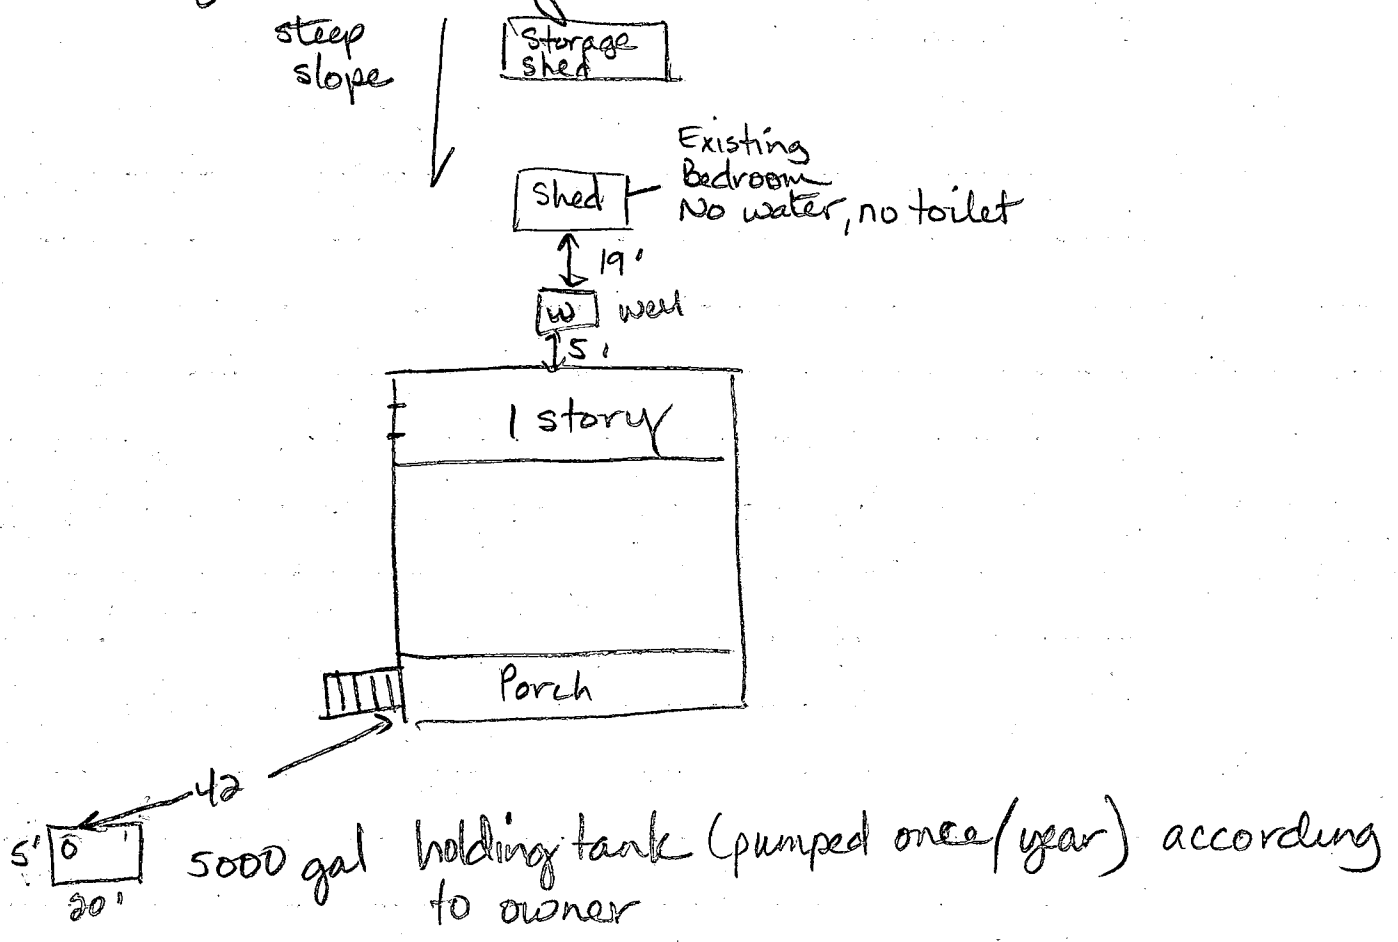 steep
slope
Storage
shed
Existing
Bedroom
No water, no toilet
Shed
19'
W well
5'
1 story
Porch
42
5'
20'
5000 gal holding tank (pumped once/year) according
to owner